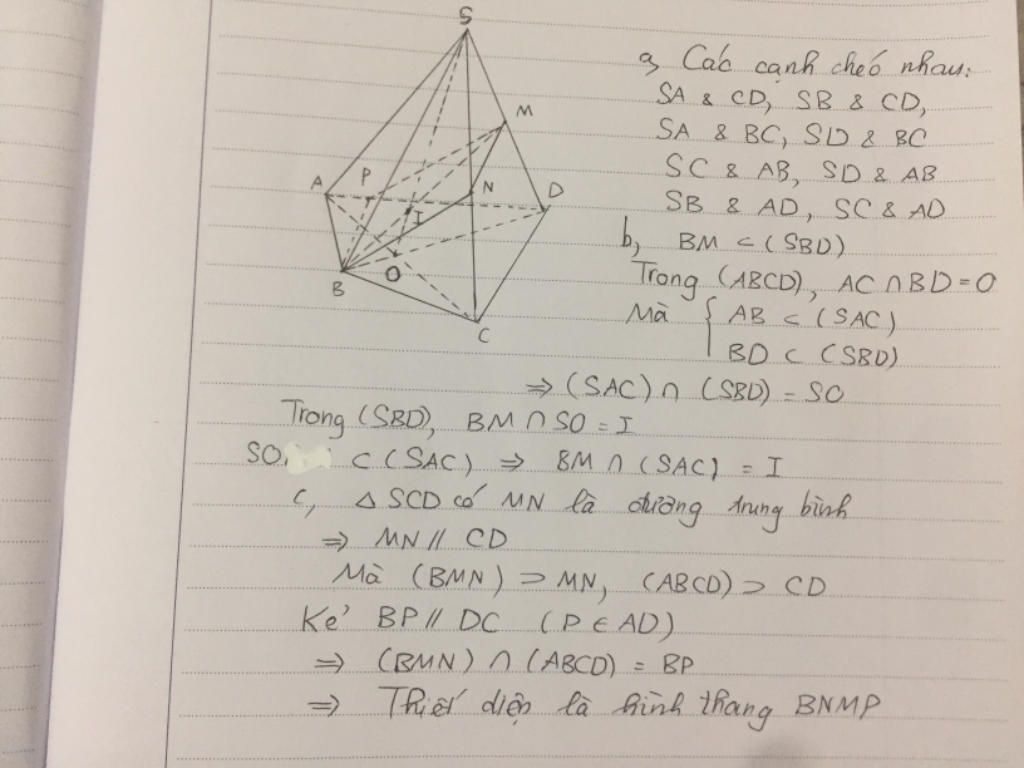 S
M
A
P
N
D
I
O
B
C
a, Các cạnh chéo nhau:
SA & CD, SB & CD,
SA & BC, SD & BC
SC & AB, SD & AB
SB & AD, SC & AD
b, BM ⊂ (SBD)
Trong (ABCD), AC ∩ BD = O
Mà { AB ⊂ (SAC)
BD ⊂ (SBD)
⇒ (SAC) ∩ (SBD) = SO
Trong (SBD), BM ∩ SO = I
SO ⊂ (SAC) ⇒ BM ∩ (SAC) = I
c, △ SCD có MN là đường trung bình
⇒ MN // CD
Mà (BMN) ⊃ MN, (ABCD) ⊃ CD
Kẻ BP // DC (P ∈ AD)
⇒ (BMN) ∩ (ABCD) = BP
⇒ Thiết diện là hình thang BNMP